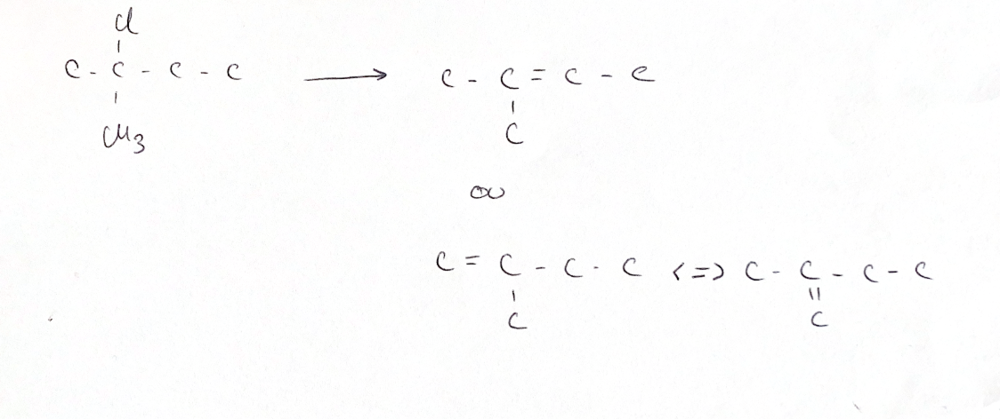 Cl
C - C - C - C → C - C = C - C
CH3 C
ou
C = C - C - C <=> C - C - C - C
C C